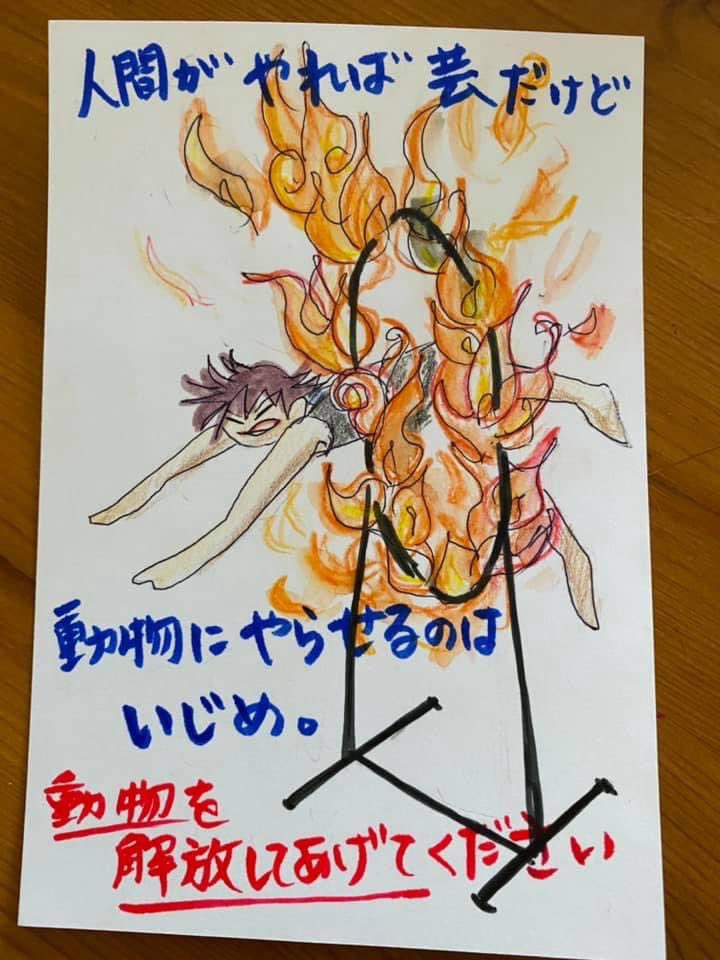 人間が やれば 芸だけど
動物に やらせるのは
いじめ。
動物を
解放してあげてください